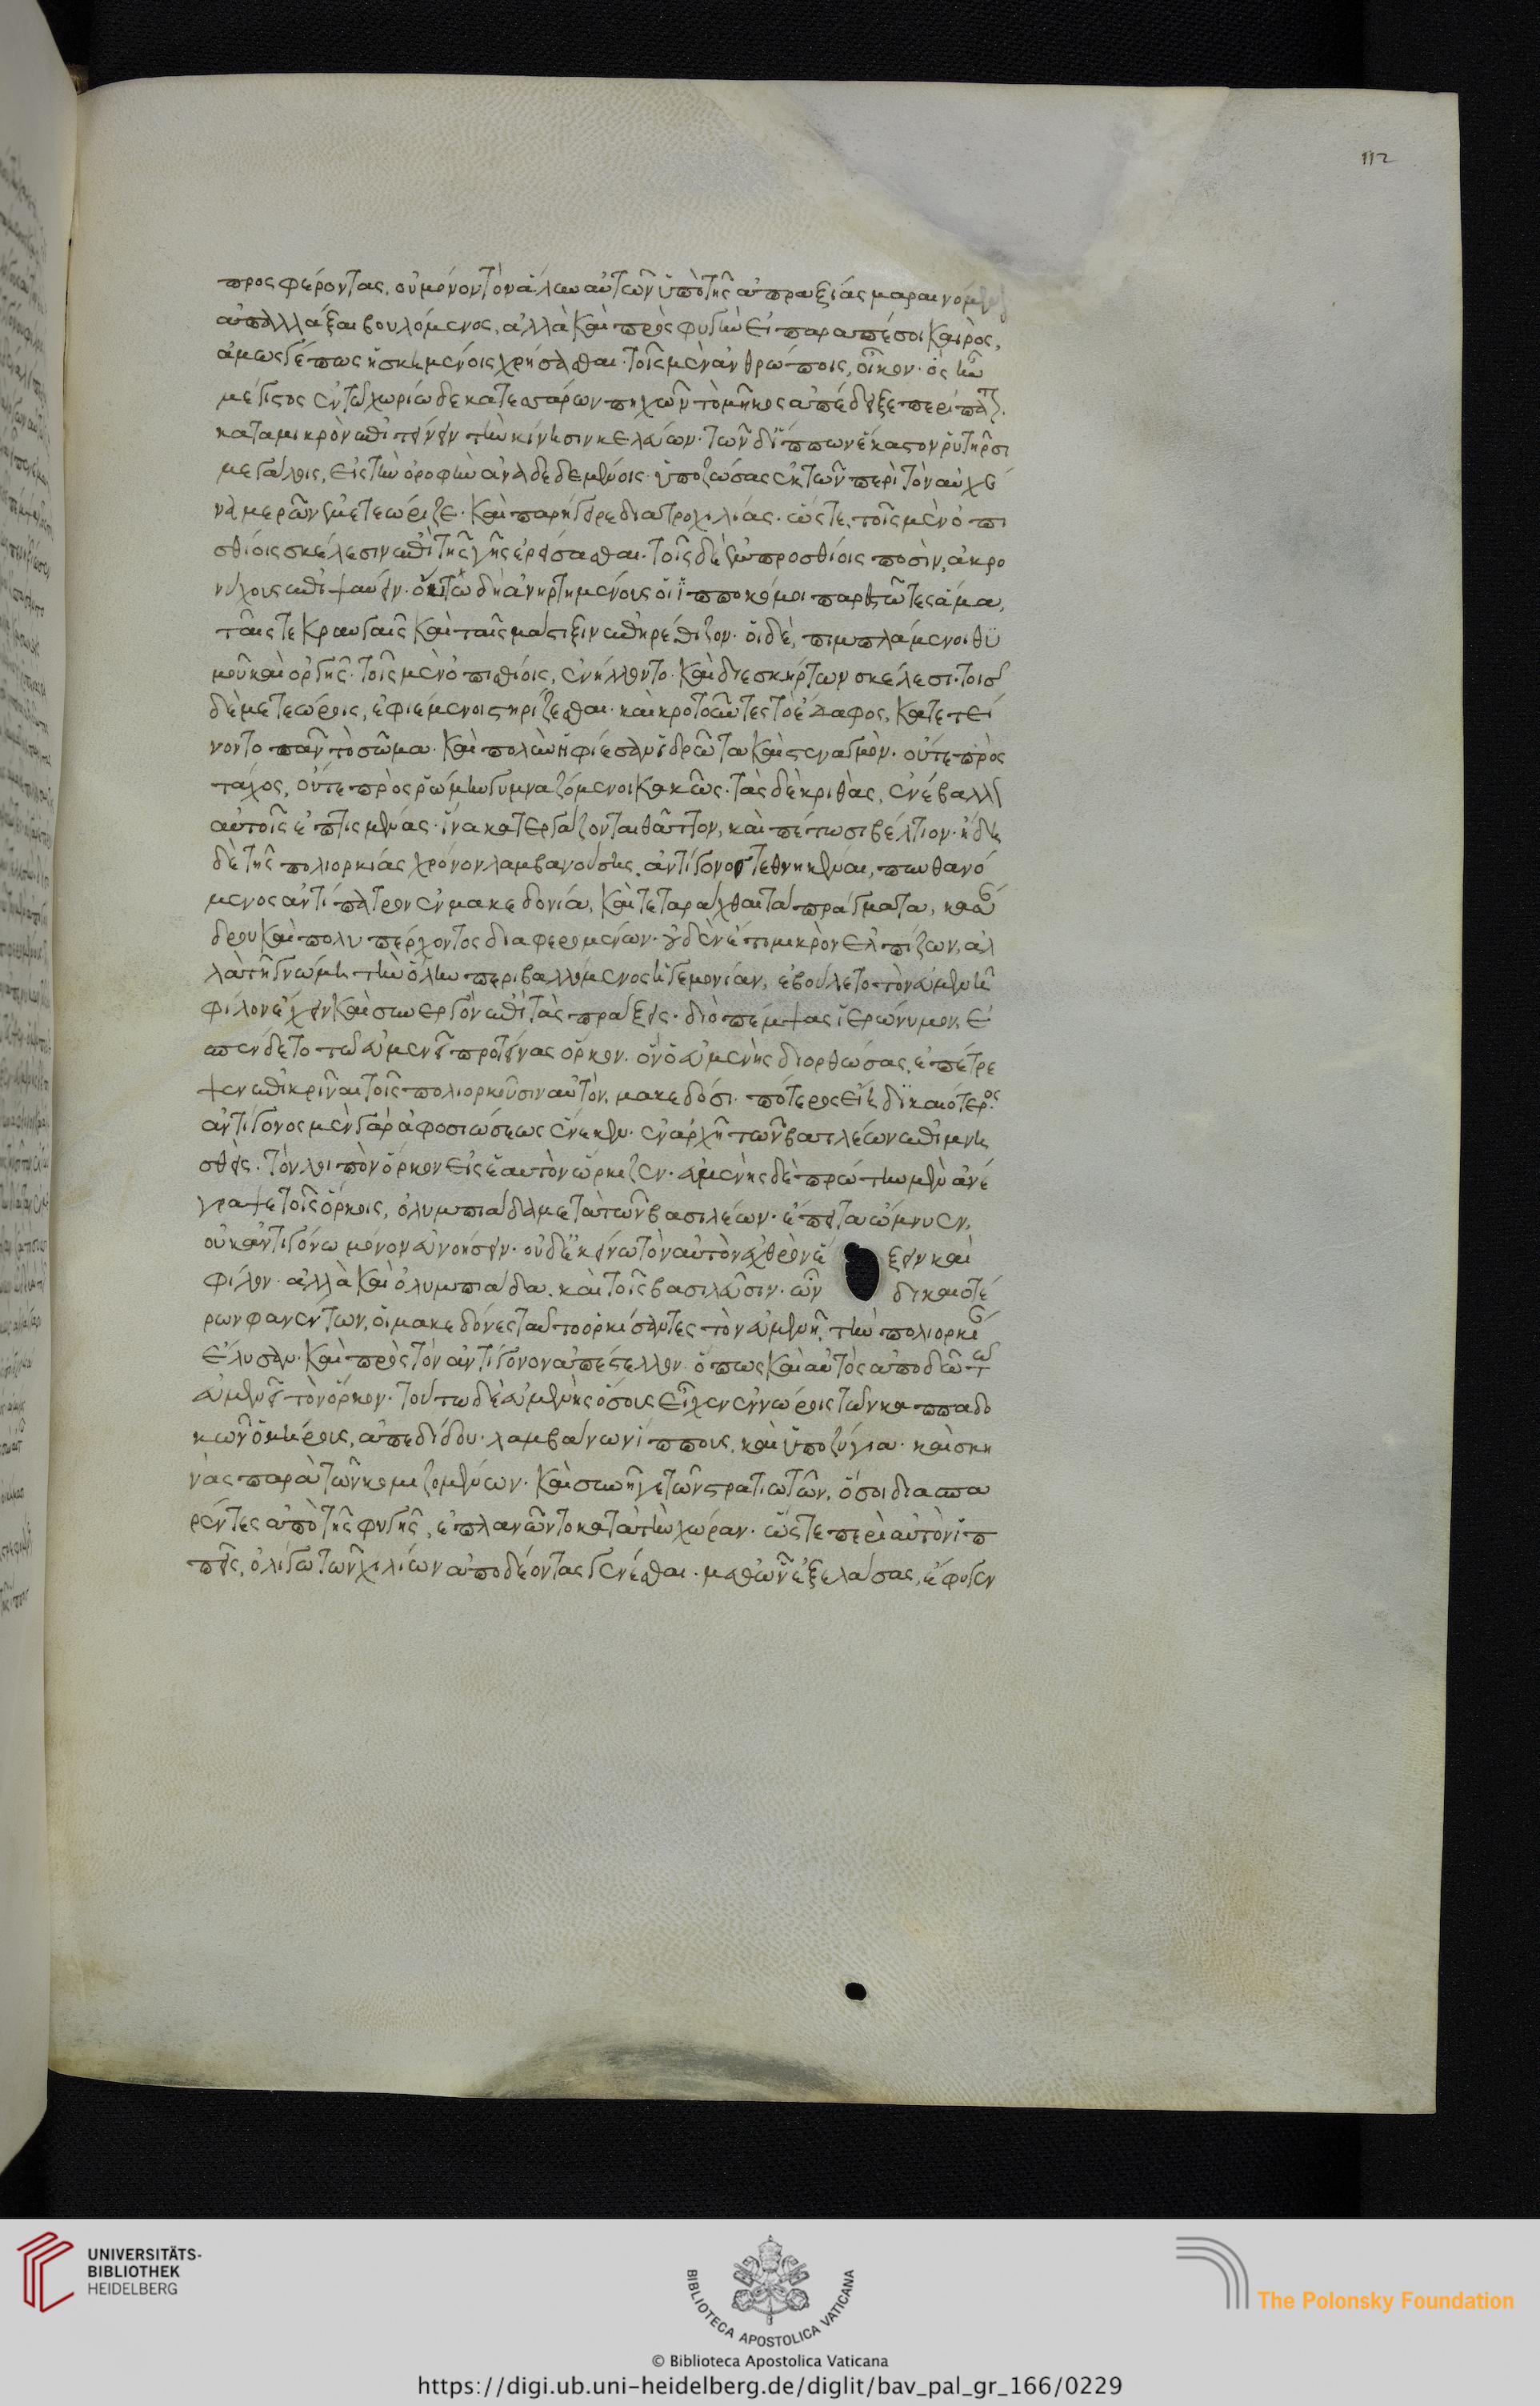 112
προσφέροντας. οὐ μόνον τὸν ἄλυν αὐτῶν ὑπὸ τῆς ἀπραξίας μαραινομένων
ἀπαλλάξαι βουλόμενος, ἀλλὰ καὶ πρὸς φυγὴν εἰ παραπέσοι καιρὸς,
ἀμωσγέπως ἠσκημένοις χρήσασθαι· τοῖς μὲν ἀνθρώποις, οἶκον· ὃς ἦν
μέγιστος ἐν τῶ χωρίω δεκατεσσάρων πηχῶν τὸ μῆκος ἀπέδειξε περίπατον·
κατὰ μικρὸν ἐπιτείνειν τὴν κίνησιν κελεύων· τῶν δ' ἵππων ἕκαστον ῥυτῆρσι
μεγάλοις, εἰς τὴν ὀροφὴν ἀναδεδεμένοις· ὑποζώσας ἐκ τῶν περὶ τὸν αὐχέ
να μερῶν ἐμετεώριζε· καὶ παρήγειρε διὰ τροχιλίας· ὥστε, τοῖς μὲν ὀπι
σθίοις σκέλεσιν ἐπὶ τῆς γῆς ἐρείσασθαι· τοῖς δὲ ἐμπροσθίοις ποσὶν, ἀκρο
νύχους ἐπιψαύειν· οὕτω δὴ ἀνηρτημένους οἱ ἱπποκόμοι παρεστῶτες ἅμα,
ταῖς τε κραυγαῖς καὶ ταῖς μάστιξιν ἐπηρέθιζον· οἱ δὲ, πιμπλάμενοι θυ
μοῦ καὶ ὀργῆς· τοῖς μὲν ὀπισθίοις, ἐνήλλοντο· καὶ διεσκήρτων σκέλεσι· τοῖς
δὲ μετεώροις, ἐφιέμενοι στηρίζεσθαι· καὶ κροτοῦντες τὸ ἔδαφος, κατετεί
νοντο πᾶν τὸ σῶμα· καὶ πολὺν ἠφίεσαν ἱδρῶτα καὶ στεναγμόν· οὔτε πρὸς
τάχος, οὔτε πρὸς ῥώμην γυμναζόμενοι κακῶς· τὰς δὲ κριθὰς, ἐνέβαλλον
αὐτοῖς ἐπτισμένας· ἵνα κατεργάζονται θᾶττον, καὶ πέττωσι βέλτιον· ἤδη
δὲ τῆς πολιορκίας χρόνον λαμβανούσης, ἀντίγονος τεθνηκέναι, πυνθανό
μενος ἀντίπατρον ἐν μακεδονία, καὶ τετάραχθαι τὰ πράγματα, κασάν
δρου καὶ πολυπέρχοντος διαφερομένων· οὐδὲν ἔτι μικρὸν ἐλπίζων, ἀλ
λὰ τῆ γνώμη τὴν ὅλην περιβαλλόμενος ἡγεμονίαν, ἐβούλετο τὸν εὐμενῆ
φίλον ἔχειν καὶ συνεργὸν ἐπὶ τὰς πράξεις· διὸ πέμψας ἱερώνυμον, ἐ
σπένδετο τῶ εὐμενεῖ προτείνας ὅρκον· ὃν ὁ εὐμενὴς διορθώσας, ἐπέτρε
ψεν ἐπικρῖναι τοῖς πολιορκοῦσιν αὐτὸν, μακεδόσι· πότερος εἴη δικαιότερος·
ἀντίγονος μὲν γὰρ ἀφοσιώσεως ἕνεκεν· ἐν ἀρχῆ τῶν βασιλέων ἐπιμνη
σθεὶς· τὸν λοιπὸν ὅρκον εἰς ἑαυτὸν ὥρκιζεν· εὐμενὴς δὲ πρώτην μὲν ἀνέ
γραψε τοῖς ὅρκοις, ὀλυμπιάδα μετὰ τῶν βασιλέων· ἔπειτα ὤμνυεν,
οὐκ ἀντιγόνω μόνον εὐνοήσειν· οὐδ' ἐκείνω τὸν αὐτὸν ἐχθρὸν ἕ ξειν καὶ
φίλον· ἀλλὰ καὶ ὀλυμπιάδα, καὶ τοῖς βασιλεῦσιν· ὧν δικαιοτέ
ρων φανέντων, οἱ μακεδόνες ταῦτα ὁρκίσαντες τὸν εὐμενῆ, τὴν πολιορκίαν
ἔλυσαν· καὶ πρὸς τὸν ἀντίγονον ἀπέστελλον· ὅπως καὶ αὐτὸς ἀποδῶ τῶ
εὐμενεῖ τὸν ὅρκον· τούτω δὲ εὐμενὴς ὅσους εἶχεν ἐν νώροις τῶν καππαδο
κῶν ὁμήρους, ἀπεδίδου· λαμβάνων ἵππους, καὶ ὑποζύγια· καὶ σκη
νὰς παρὰ τῶν κομιζομένων· καὶ συνῆγε τῶν στρατιωτῶν, ὅσοι διασπα
ρέντες ἀπὸ τῆς φυγῆς, ἐπλανῶντο κατὰ τὴν χώραν· ὥστε περὶ αὐτὸν ἱπ
πεῖς, ὀλίγω τῶν χιλίων ἀποδέοντας γενέσθαι· μεθ' ὧν ἐξελάσας, ἔφυγεν
UNIVERSITÄTS-
BIBLIOTHEK
HEIDELBERG
BIBLIOTECA APOSTOLICA VATICANA
© Biblioteca Apostolica Vaticana
The Polonsky Foundation
https://digi.ub.uni-heidelberg.de/diglit/bav_pal_gr_166/0229